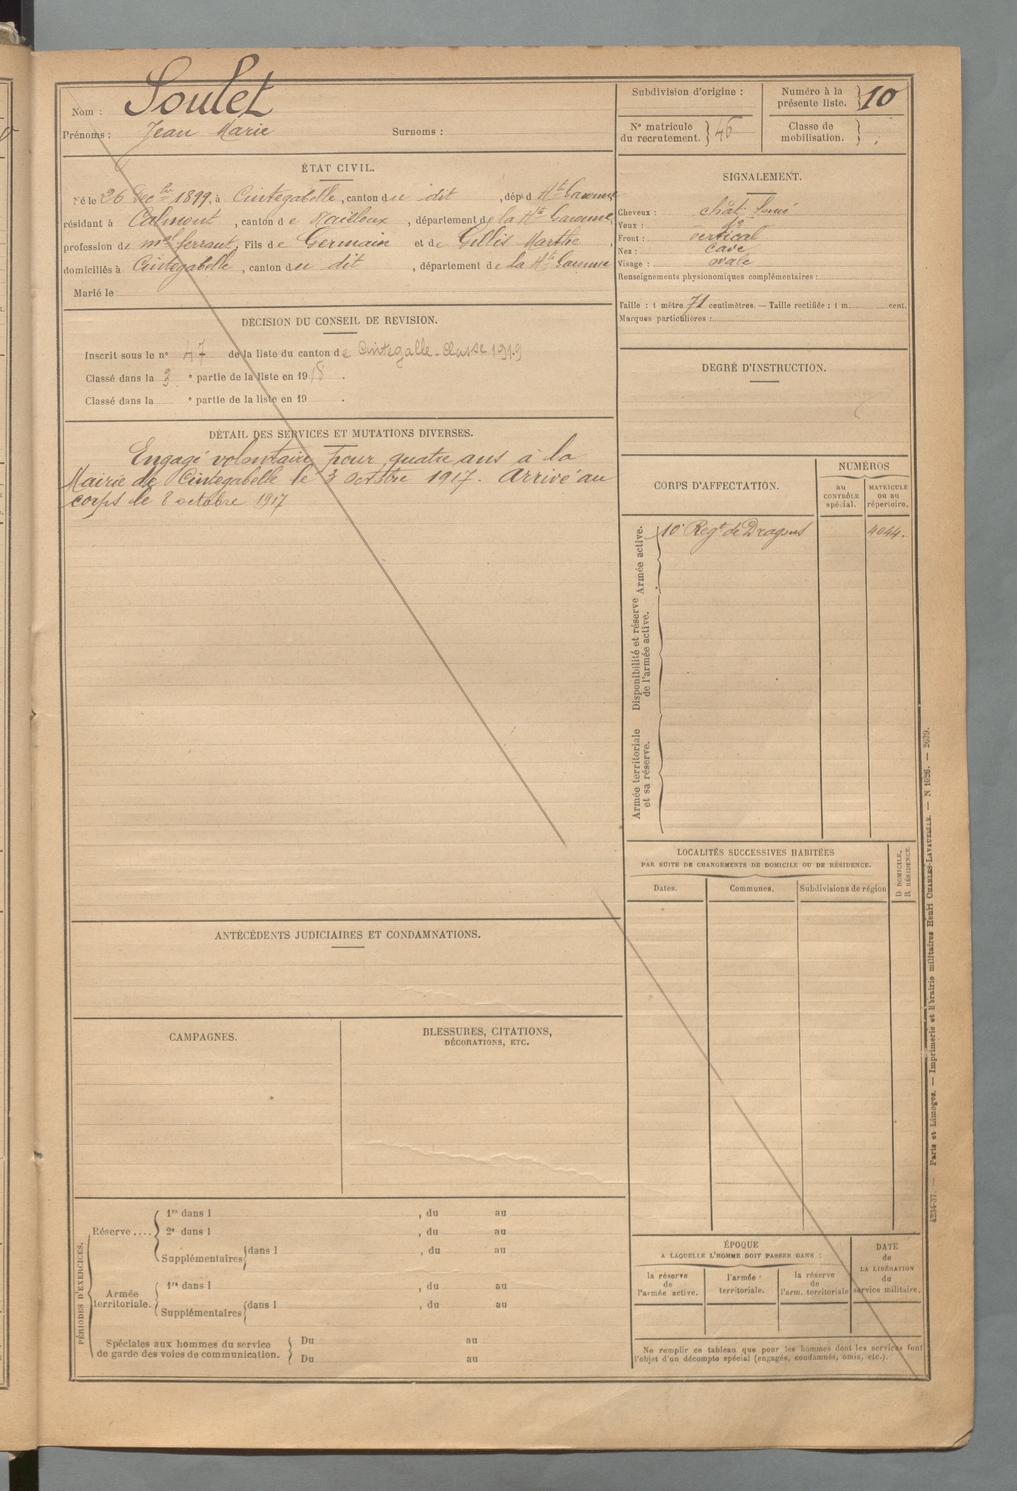 Nom : Soulet
Prénoms : Jean Marie Surnoms :
Subdivision d'origine :
Numéro à la présente liste. 10
N° matricule du recrutement. 46
Classe de mobilisation.
ÉTAT CIVIL.
Né le 26 Déc bre 1899, à Cintegabelle, canton du dit, dépt d Hte Garonne
résidant à Calmont, canton de Nailloux, département de la Hte Garonne,
profession de mal ferrant, Fils de Germain et de Gellis Marthe,
domiciliés à Cintegabelle, canton du dit, département de la Hte Garonne
Marié le
SIGNALEMENT.
Cheveux : chât. foncé
Yeux : do
Front : vertical
Nez : cave
Visage : ovale
Renseignements physionomiques complémentaires :
Taille : 1 mètre 71 centimètres. — Taille rectifiée : 1 m. cent.
Marques particulières :
DÉCISION DU CONSEIL DE REVISION.
Inscrit sous le n° 47 de la liste du canton de Cintegalle - Classe 1919
Classé dans la 3 e partie de la liste en 1918.
Classé dans la e partie de la liste en 19 .
DEGRÉ D'INSTRUCTION.
DÉTAIL DES SERVICES ET MUTATIONS DIVERSES.
Engagé volontaire pour quatre ans à la
Mairie de Cintegabelle le 3 octobre 1917. Arrivé au
corps le 8 octobre 1917
CORPS D'AFFECTATION.
NUMÉROS
au CONTRÔLE spécial.
MATRICULE ou au répertoire.
Armée active.
10e Regt de Dragons 4044.
Disponibilité et réserve de l'armée active.
Armée territoriale et sa réserve.
LOCALITÉS SUCCESSIVES HABITÉES
PAR SUITE DE CHANGEMENTS DE DOMICILE OU DE RÉSIDENCE.
D. DOMICILE,
R. RÉSIDENCE.
Dates. Communes. Subdivisions de région
ANTÉCÉDENTS JUDICIAIRES ET CONDAMNATIONS.
CAMPAGNES.
BLESSURES, CITATIONS,
DÉCORATIONS, ETC.
PÉRIODES D'EXERCICES.
Réserve....
1re dans l , du au
2e dans l , du au
Supplémentaires dans l , du au
Armée territoriale.
1re dans l , du au
Supplémentaires dans l , du au
Spéciales aux hommes du service
de garde des voies de communication.
Du au
Du au
ÉPOQUE
A LAQUELLE L'HOMME DOIT PASSER DANS :
DATE de LA LIBÉRATION du service militaire.
la réserve de l'armée active.
l'armée territoriale.
la réserve de l'arm. territoriale
Ne remplir ce tableau que pour les hommes dont les services font
l'objet d'un décompte spécial (engagés, condamnés, omis, etc.).
4234-37. — Paris et Limoges. — Imprimerie et librairie militaires Henri CHARLES-LAVAUZELLE. — N 1026. — 2679.